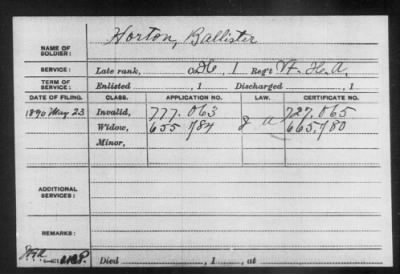 Horton, Ballister
NAME OF SOLDIER:
SERVICE: Late rank, Co. H, 1 Reg't Vt. H. A.
TERM OF SERVICE: Enlisted , 1 Discharged , 1
DATE OF FILING. CLASS. APPLICATION NO. LAW. CERTIFICATE NO.
1890 May 23 Invalid, 777.063 727.065
Widow, 655 784 G a 665,780
Minor,
ADDITIONAL SERVICES:
REMARKS:
Died , 1 , at